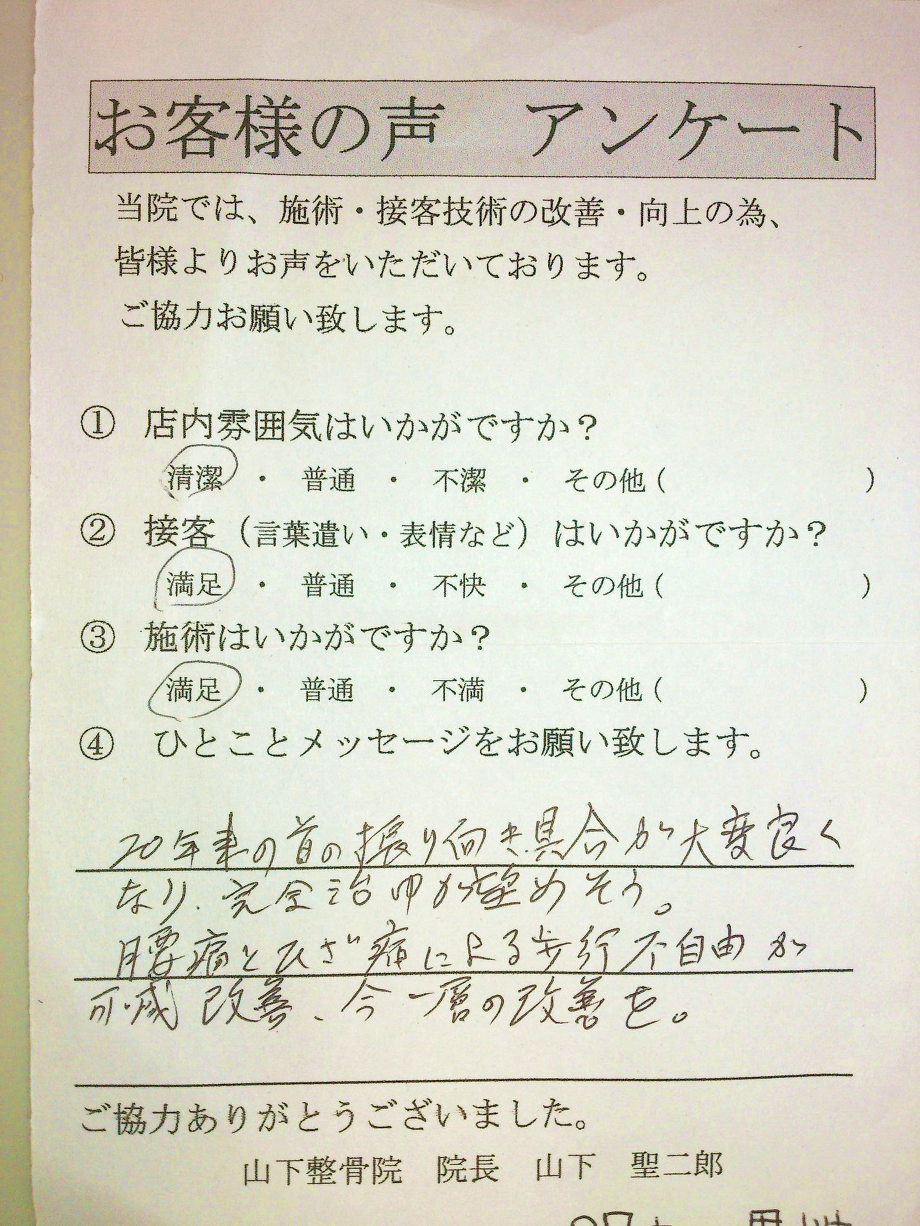 お客様の声　アンケート
当院では、施術・接客技術の改善・向上の為、
皆様よりお声をいただいております。
ご協力お願い致します。
① 店内雰囲気はいかがですか？
清潔 ・ 普通 ・ 不潔 ・ その他（　　　　　　）
② 接客（言葉遣い・表情など）はいかがですか？
満足 ・ 普通 ・ 不快 ・ その他（　　　　　　）
③ 施術はいかがですか？
満足 ・ 普通 ・ 不満 ・ その他（　　　　　　）
④ ひとことメッセージをお願い致します。
20年来の首の振り向き具合が大変良く
なり、完全治ゆが望めそう。
腰痛とひざ痛による歩行不自由が
改善、今一層の改善を。
ご協力ありがとうございました。
山下整骨院　院長　山下　聖二郎